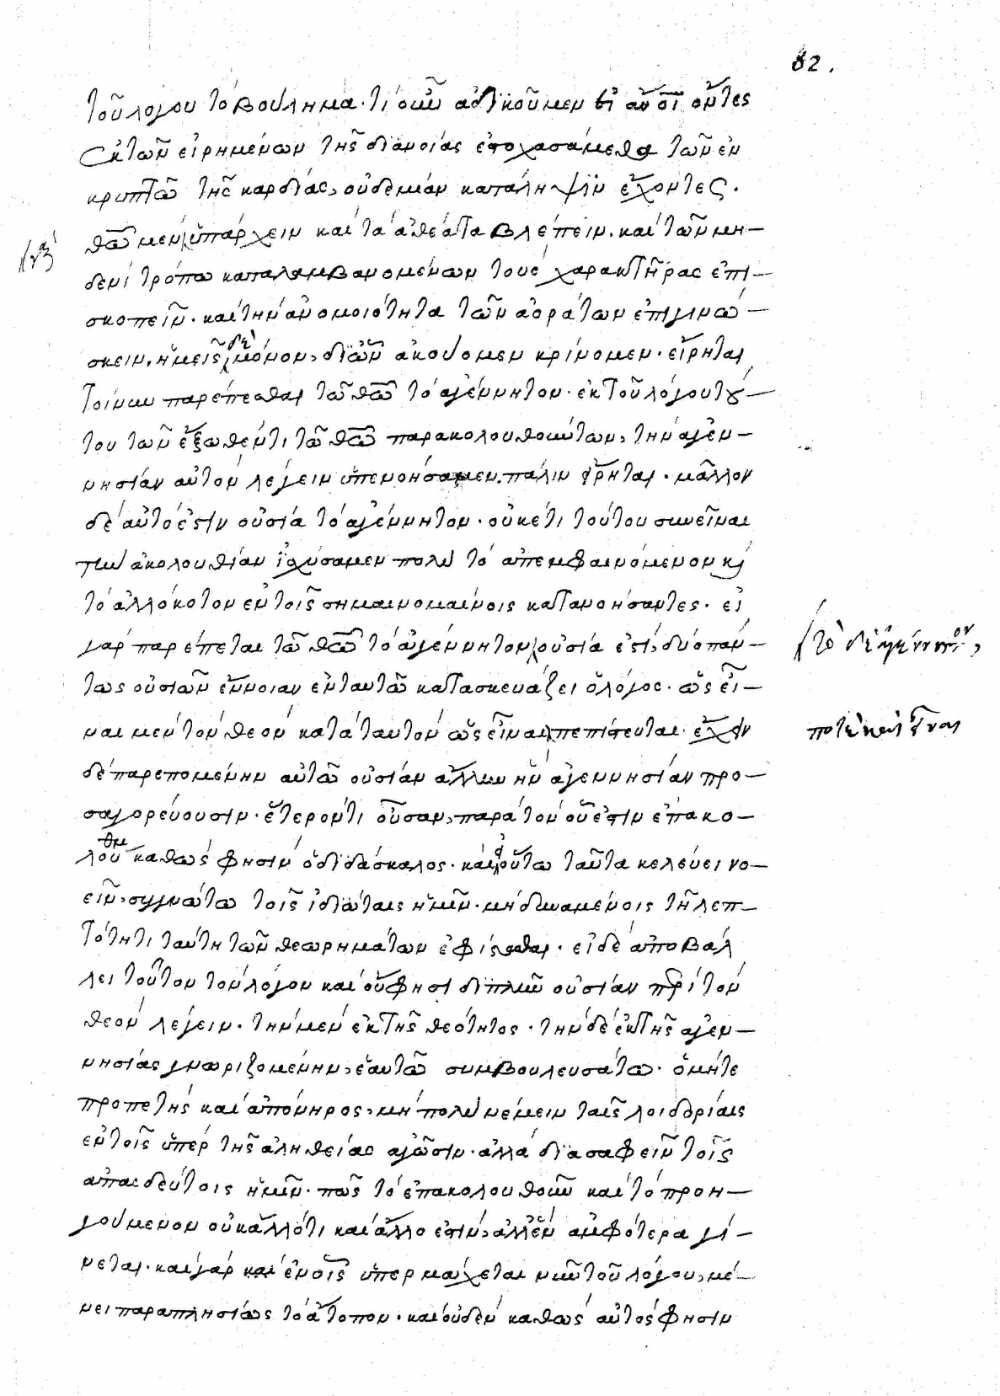 82.
τοῦ λόγου τὸ βούλημα· τί οὖν ἀδικοῦμεν εἰ ἂν οἱ ὄντες
ἐκ τῶν εἰρημένων τῆς διανοίας ἐστοχασάμεθα τῶν ἐν
κρυπτῶ τῆς καρδίας, οὐδεμίαν κατάληψιν ἔχοντες.
θῶ μὲν ὑπάρχειν καὶ τὰ ἀθέατα βλέπειν. καὶ τῶν μη-
δενὶ τρόπω καταλαμβανομένων τοὺς χαρακτῆρας ἐπι-
σκοπεῖν. καὶ τὴν ἀνομοιότητα τῶν ἀοράτων ἐπιγινώ-
σκειν, ἡμεῖς δὲ μόνον, δι' ὧν ἀκούομεν κρίνομεν· εἴρηται
τοίνυν παρέπεσθαι τῶ θῶ τὸ ἀγέννητον· ἐκ τοῦ λόγου τού-
του τῶν ἔξωθέν τι τῶ θῶ παρακολουθούντων, τὴν ἀγεν-
νησίαν αὐτὸν λέγειν ὑπενοήσαμεν. πάλιν εἴρηται· μᾶλλον
δὲ αὐτό ἐστιν οὐσία τὸ ἀγέννητον· οὐκέτι τούτου συνεῖναι
τὴν ἀκολουθίαν ἰσχύσαμεν πολὺ τὸ ἀπεμφαινόμενον κ
τὸ ἀλλόκοτον ἐν τοῖς σημαινομαίνοις κατανοήσαντες· εἰ
γὰρ παρέπεται τῶ θῶ τὸ ἀγέννητον, οὐσία ἐστὶ, δύο πάν-
(τὸ δὲ ἀγέννητον,
τως οὐσιῶν ἔννοιαν ἐν ταυτῶ κατασκευάζει ὁ λόγος· ὡς εἶ-
ναι μὲν τὸν θεὸν κατὰ ταυτὸν ὡς εἶναι πεπίστευται· ἔχειν
ποτὲ καὶ εἶναι
δὲ παρεπομένην αὐτῶ οὐσίαν ἄλλην ἣν ἀγεννησίαν προ-
σαγορεύουσιν· ἕτερόν τι οὖσαν, παρὰ τὸν οὗ ἐστιν ἐπακο-
λουθ καθώς φησιν ὁ διδάσκαλος· καὶ οὕτω ταῦτα κελεύει νο-
εῖν, συγγνώτω τοῖς ἰδιώταις ἡμῖν· μὴ δυναμένοις τῆ λεπ-
τότητι ταύτη τῶν θεωρημάτων ἐφίστασθαι· εἰ δὲ ἀποβάλ
λει τοῦτον τὸν λόγον καὶ οὔ φησι διπλῆν οὐσίαν περὶ τὸν
θεὸν λέγειν· τὴν μὲν ἐκ τῆς θεότητος· τὴν δὲ ἐκ τῆς ἀγεν-
νησίας γνωριζομένην, ἑαυτῶ συμβουλευσάτω· ὁ μήτε
προπετὴς καὶ ἀπόνηρος, μὴ πολὺ νέμειν ταῖς λοιδορίαις
ἐν τοῖς ὑπὲρ τῆς ἀληθείας ἀγῶσιν· ἀλλὰ διασαφεῖν τοῖς
ἀπαιδεύτοις ἡμῖν· πῶς τὸ ἐπακολουθοῦν καὶ τὸ προη-
γούμενον οὐκ ἄλλό τι καὶ ἄλλο ἐστὶν, ἀλλ' ἓν ἀμφότερα γί-
νεται· καὶ γὰρ καὶ ἐν οἷς ὑπερμάχεται νῦν τοῦ λόγου, μέ-
νει παραπλησίως τὸ ἄτοπον· καὶ οὐδὲν καθὼς αὐτός φησιν